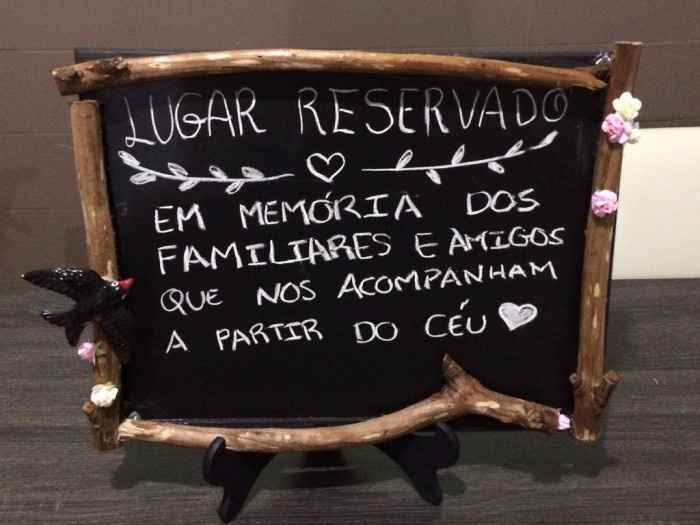 LUGAR RESERVADO
EM MEMÓRIA DOS
FAMILIARES E AMIGOS
QUE NOS ACOMPANHAM
A PARTIR DO CÉU